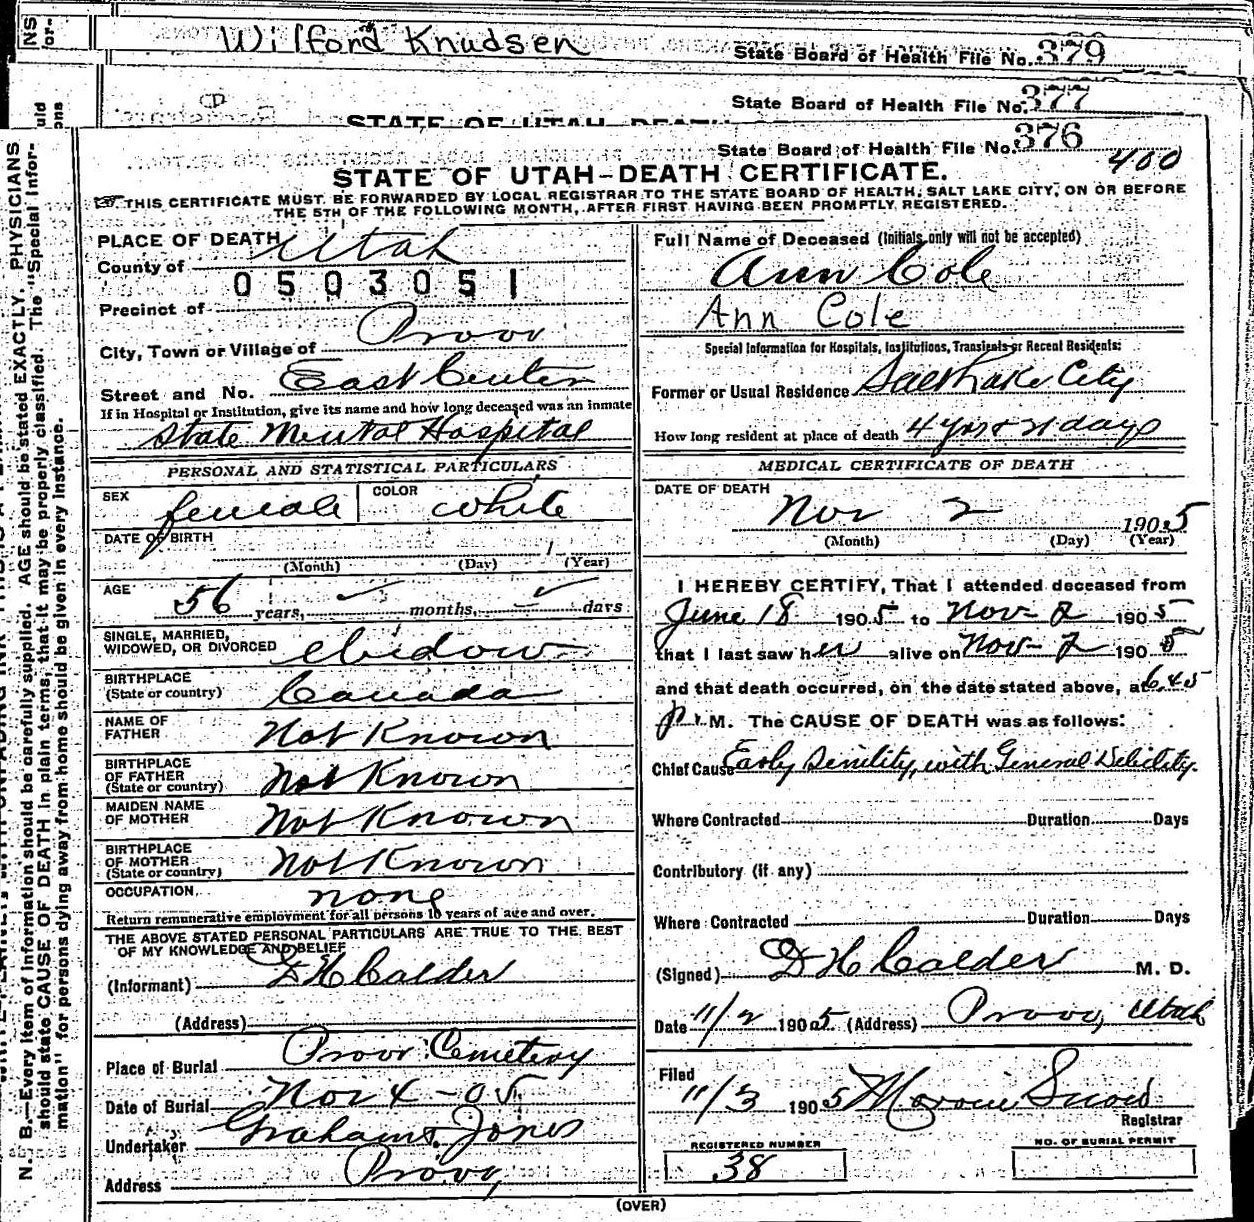 NS
or-
Wilford Knudsen
State Board of Health File No. 379
State Board of Health File No. 377
STATE OF UTAH-DEATH
State Board of Health File No. 376
400
STATE OF UTAH-DEATH CERTIFICATE.
THIS CERTIFICATE MUST BE FORWARDED BY LOCAL REGISTRAR TO THE STATE BOARD OF HEALTH, SALT LAKE CITY, ON OR BEFORE
THE 5TH OF THE FOLLOWING MONTH, AFTER FIRST HAVING BEEN PROMPTLY REGISTERED.
PLACE OF DEATH
County of Utah
0503051
Precinct of
City, Town or Village of Provo
Street and No. East Center
If in Hospital or Institution, give its name and how long deceased was an inmate
State Mental Hospital
PERSONAL AND STATISTICAL PARTICULARS
SEX female COLOR white
DATE OF BIRTH
(Month) (Day) 1 (Year)
AGE 56 years, ✓ months, ✓ days
SINGLE, MARRIED,
WIDOWED, OR DIVORCED Widow
BIRTHPLACE
(State or country) Canada
NAME OF
FATHER Not Known
BIRTHPLACE
OF FATHER
(State or country) Not Known
MAIDEN NAME
OF MOTHER Not Known
BIRTHPLACE
OF MOTHER
(State or country) Not Known
OCCUPATION none
Return remunerative employment for all persons 10 years of age and over.
THE ABOVE STATED PERSONAL PARTICULARS ARE TRUE TO THE BEST
OF MY KNOWLEDGE AND BELIEF
(Informant) D H Calder
(Address)
Place of Burial Provo Cemetery
Date of Burial Nov 4 - 05
Undertaker Graham & Jones
Address Provo,
Full Name of Deceased (Initials only will not be accepted)
Ann Cole
Ann Cole
Special Information for Hospitals, Institutions, Transients or Recent Residents:
Former or Usual Residence Salt Lake City
How long resident at place of death 4 yrs & 21 days
MEDICAL CERTIFICATE OF DEATH
DATE OF DEATH
Nov 2 1905
(Month) (Day) (Year)
I HEREBY CERTIFY, That I attended deceased from
June 18 1905 to Nov- 2 1905
that I last saw her alive on Nov- 2 1905
and that death occurred, on the date stated above, at 6.45
P. M. The CAUSE OF DEATH was as follows:
Chief Cause Early Senility, with General Debility.
Where Contracted Duration Days
Contributory (if any)
Where Contracted Duration Days
(Signed) D H Calder M. D.
Date 11/2 1905 (Address) Provo, Utah
Filed
11/3 1905 Moroni Snow
Registrar
REGISTERED NUMBER
38
NO. OF BURIAL PERMIT
(OVER)
N. B.—Every item of information should be carefully supplied. AGE should be stated EXACTLY. PHYSICIANS
should state CAUSE OF DEATH in plain terms, that it may be properly classified. The "Special Infor-
mation" for persons dying away from home should be given in every instance.